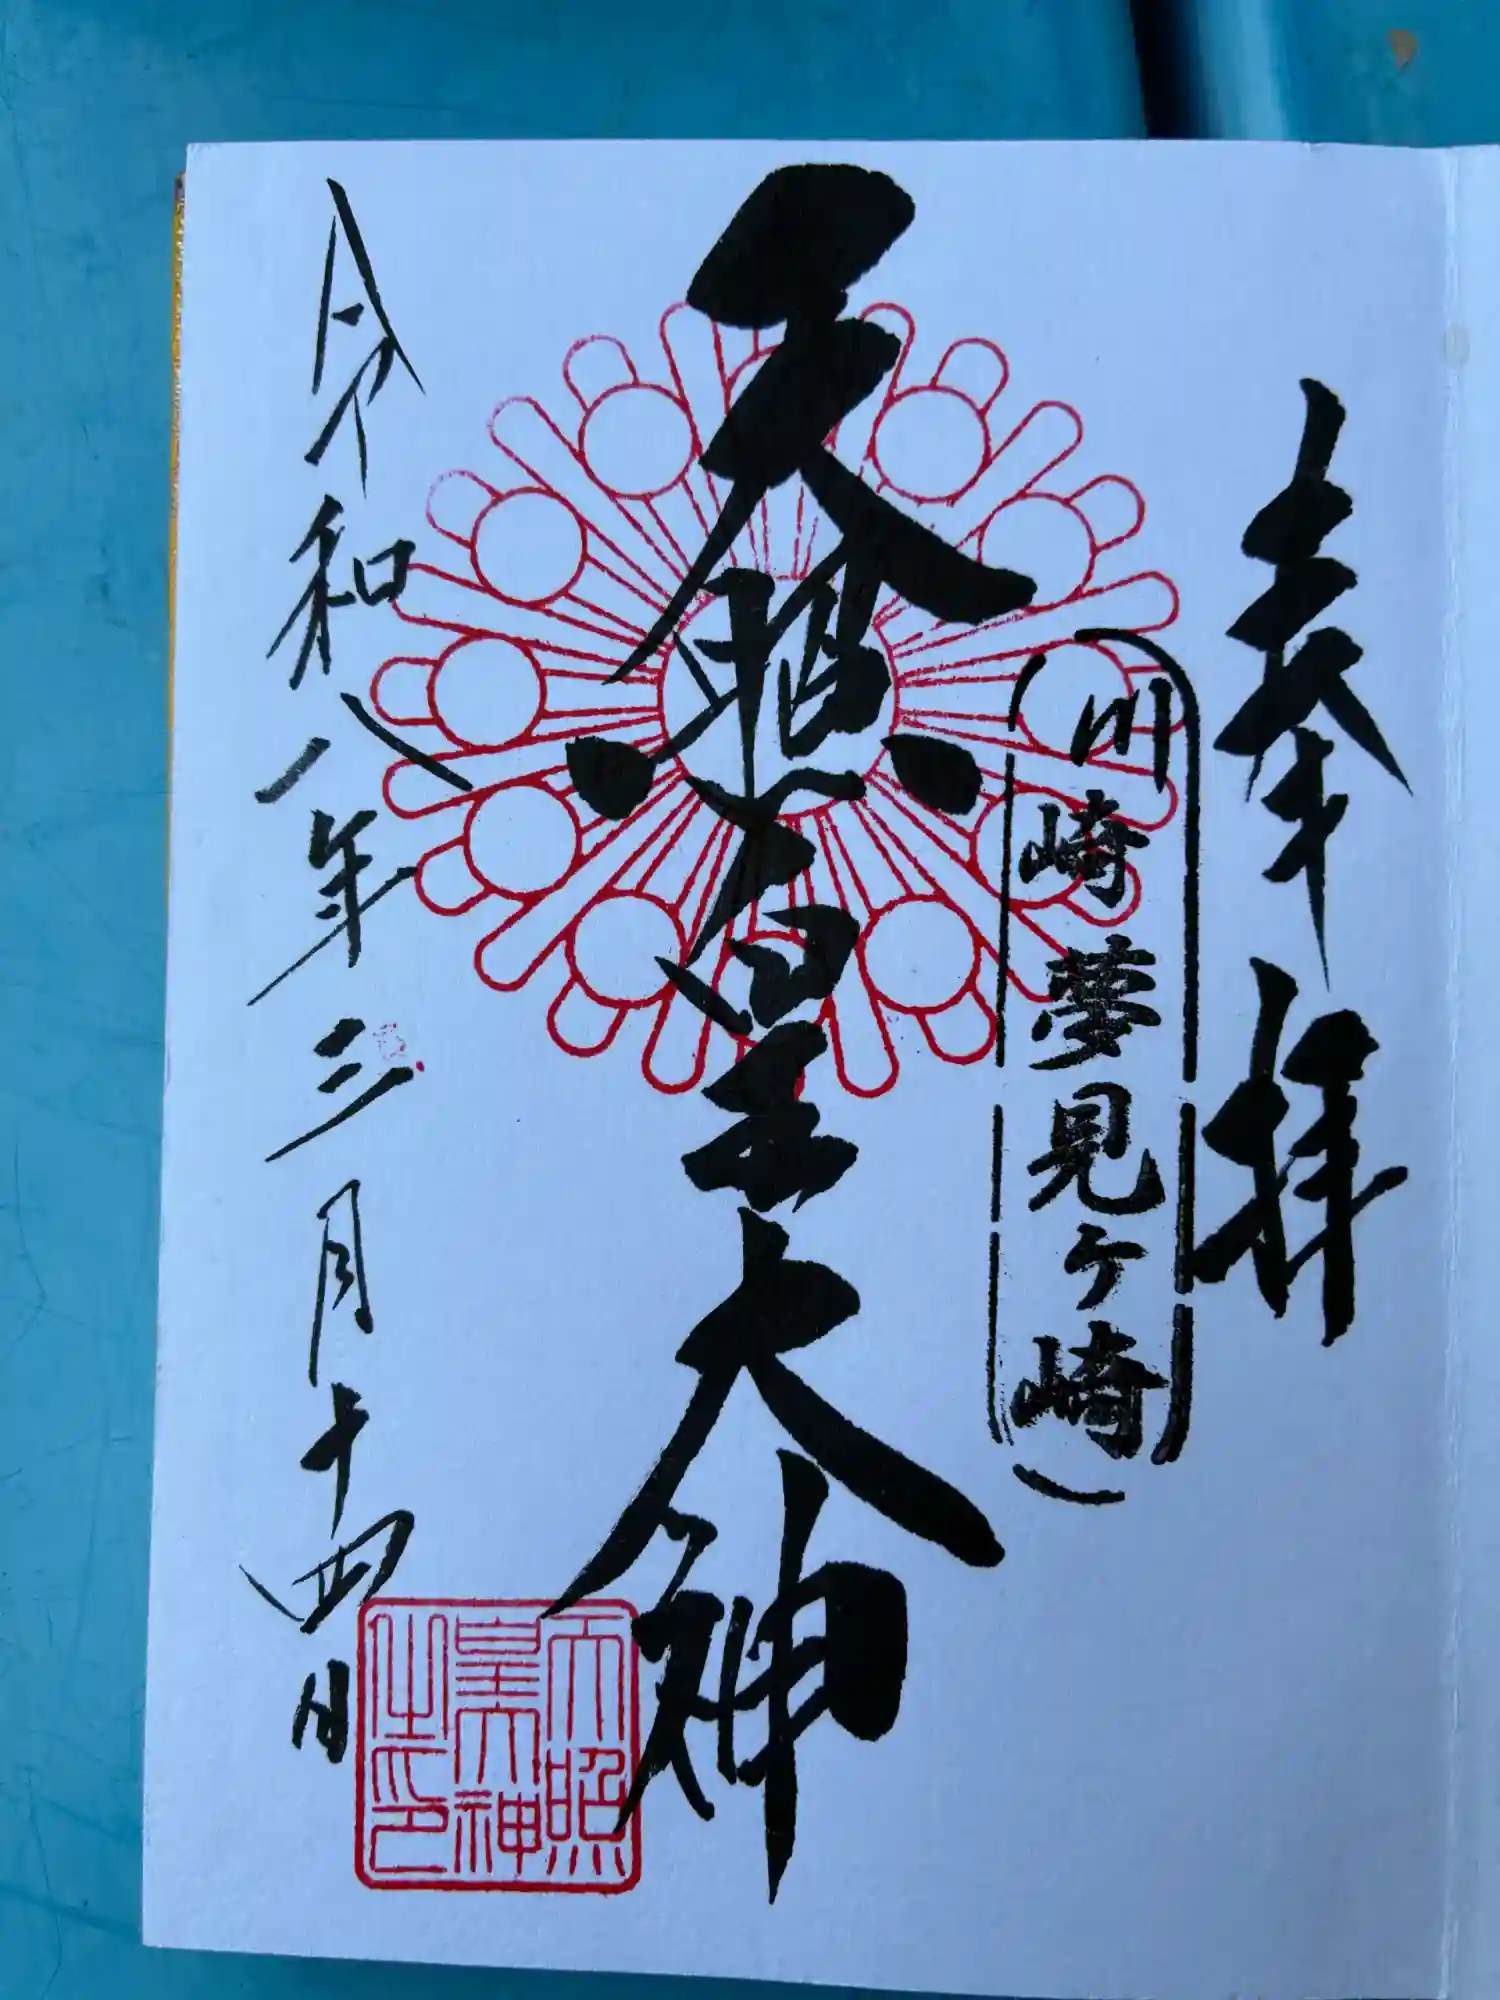 奉拝
川崎夢見ヶ崎
天照皇大神
令和八年三月十四日
天照皇大神之印